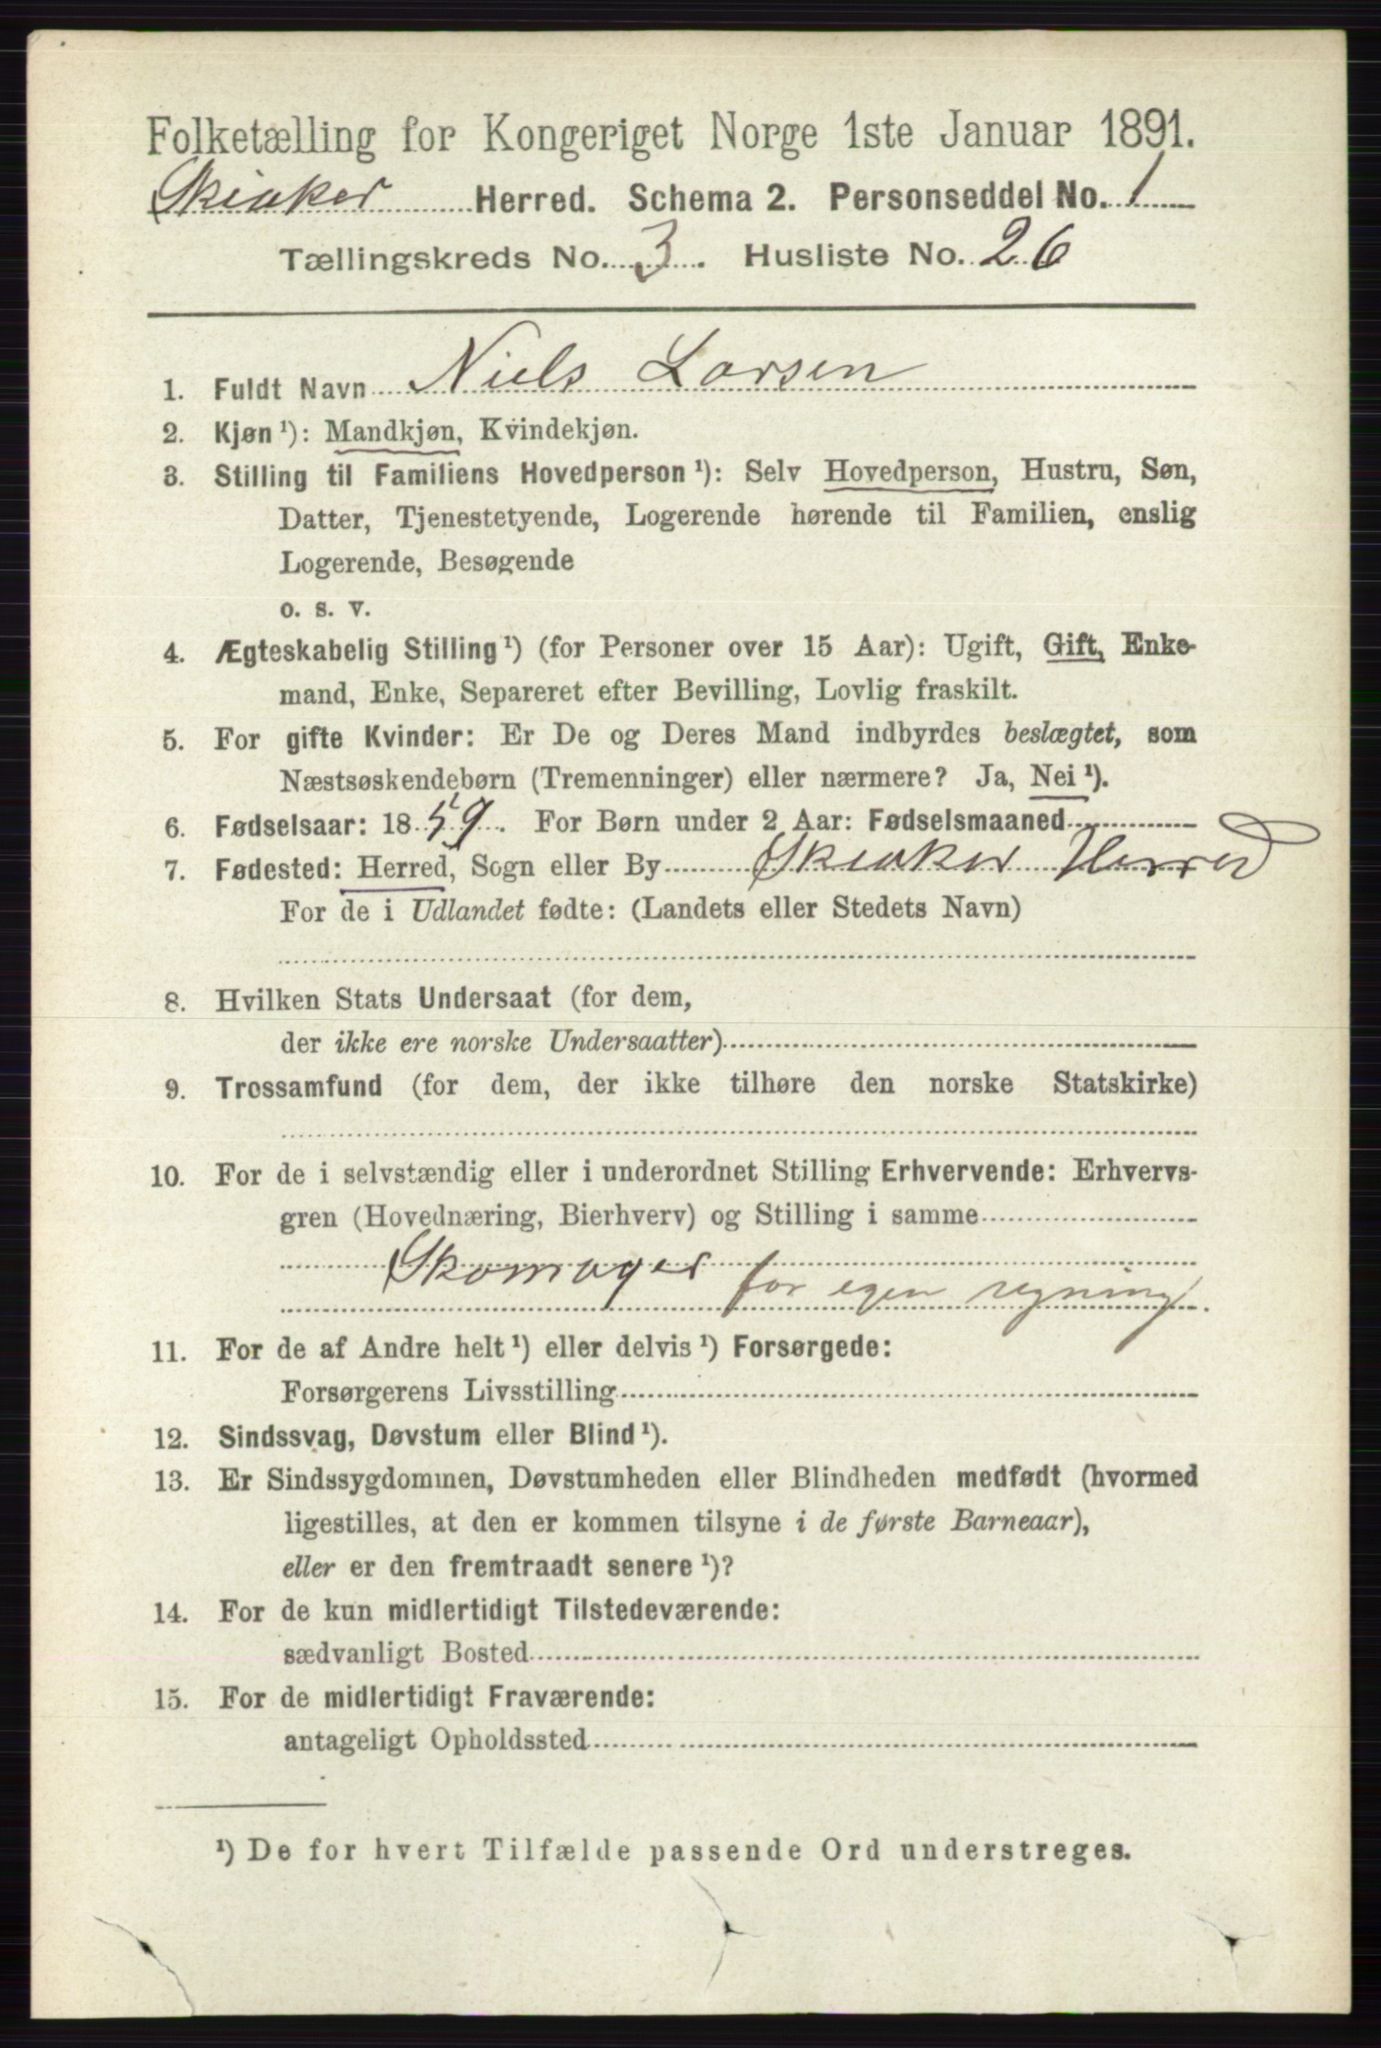 Folketælling for Kongeriget Norge 1ste Januar 1891.
Skiaker Herred. Schema 2. Personseddel No. 1
Tællingskreds No. 3. Husliste No. 26
1. Fuldt Navn Niels Larsen
2. Kjøn ¹): Mandkjøn, Kvindekjøn.
3. Stilling til Familiens Hovedperson ¹): Selv Hovedperson, Hustru, Søn,
Datter, Tjenestetyende, Logerende hørende til Familien, enslig
Logerende, Besøgende
o. s. v.
4. Ægteskabelig Stilling ¹) (for Personer over 15 Aar): Ugift, Gift, Enke-
mand, Enke, Separeret efter Bevilling, Lovlig fraskilt.
5. For gifte Kvinder: Er De og Deres Mand indbyrdes beslægtet, som
Næstsøskendebørn (Tremenninger) eller nærmere? Ja, Nei ¹).
6. Fødselsaar: 1859. For Børn under 2 Aar: Fødselsmaaned
7. Fødested: Herred, Sogn eller By Skiaker Herred
For de i Udlandet fødte: (Landets eller Stedets Navn)
8. Hvilken Stats Undersaat (for dem,
der ikke ere norske Undersaatter)
9. Trossamfund (for dem, der ikke tilhøre den norske Statskirke)
10. For de i selvstændig eller i underordnet Stilling Erhvervende: Erhvervs-
gren (Hovednæring, Bierhverv) og Stilling i samme
Skomager for egen regning.
11. For de af Andre helt ¹) eller delvis ¹) Forsørgede:
Forsørgerens Livsstilling
12. Sindssvag, Døvstum eller Blind ¹).
13. Er Sindssygdommen, Døvstumheden eller Blindheden medfødt (hvormed
ligestilles, at den er kommen tilsyne i de første Barneaar),
eller er den fremtraadt senere ¹)?
14. For de kun midlertidigt Tilstedeværende:
sædvanligt Bosted
15. For de midlertidigt Fraværende:
antageligt Opholdssted
¹) De for hvert Tilfælde passende Ord understreges.